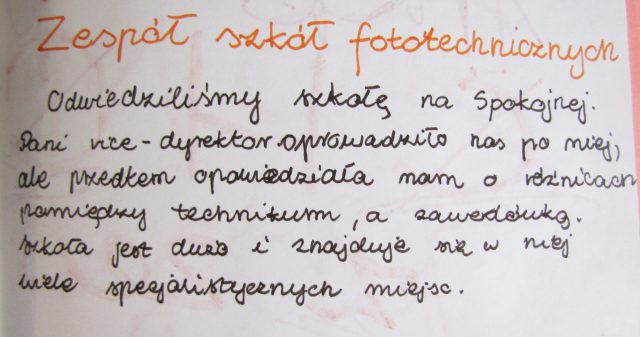 Zespół szkół fototechnicznych
Odwiedziliśmy szkołę na Spokojnej.
Pani vice-dyrektor oprowadziło nas po niej,
ale przedtem opowiedziała nam o różnicach
pamiędzy technikum, a zawodówką.
Szkoła jest duża i znajduje się w niej
wiele specjalistycznych miejsc.